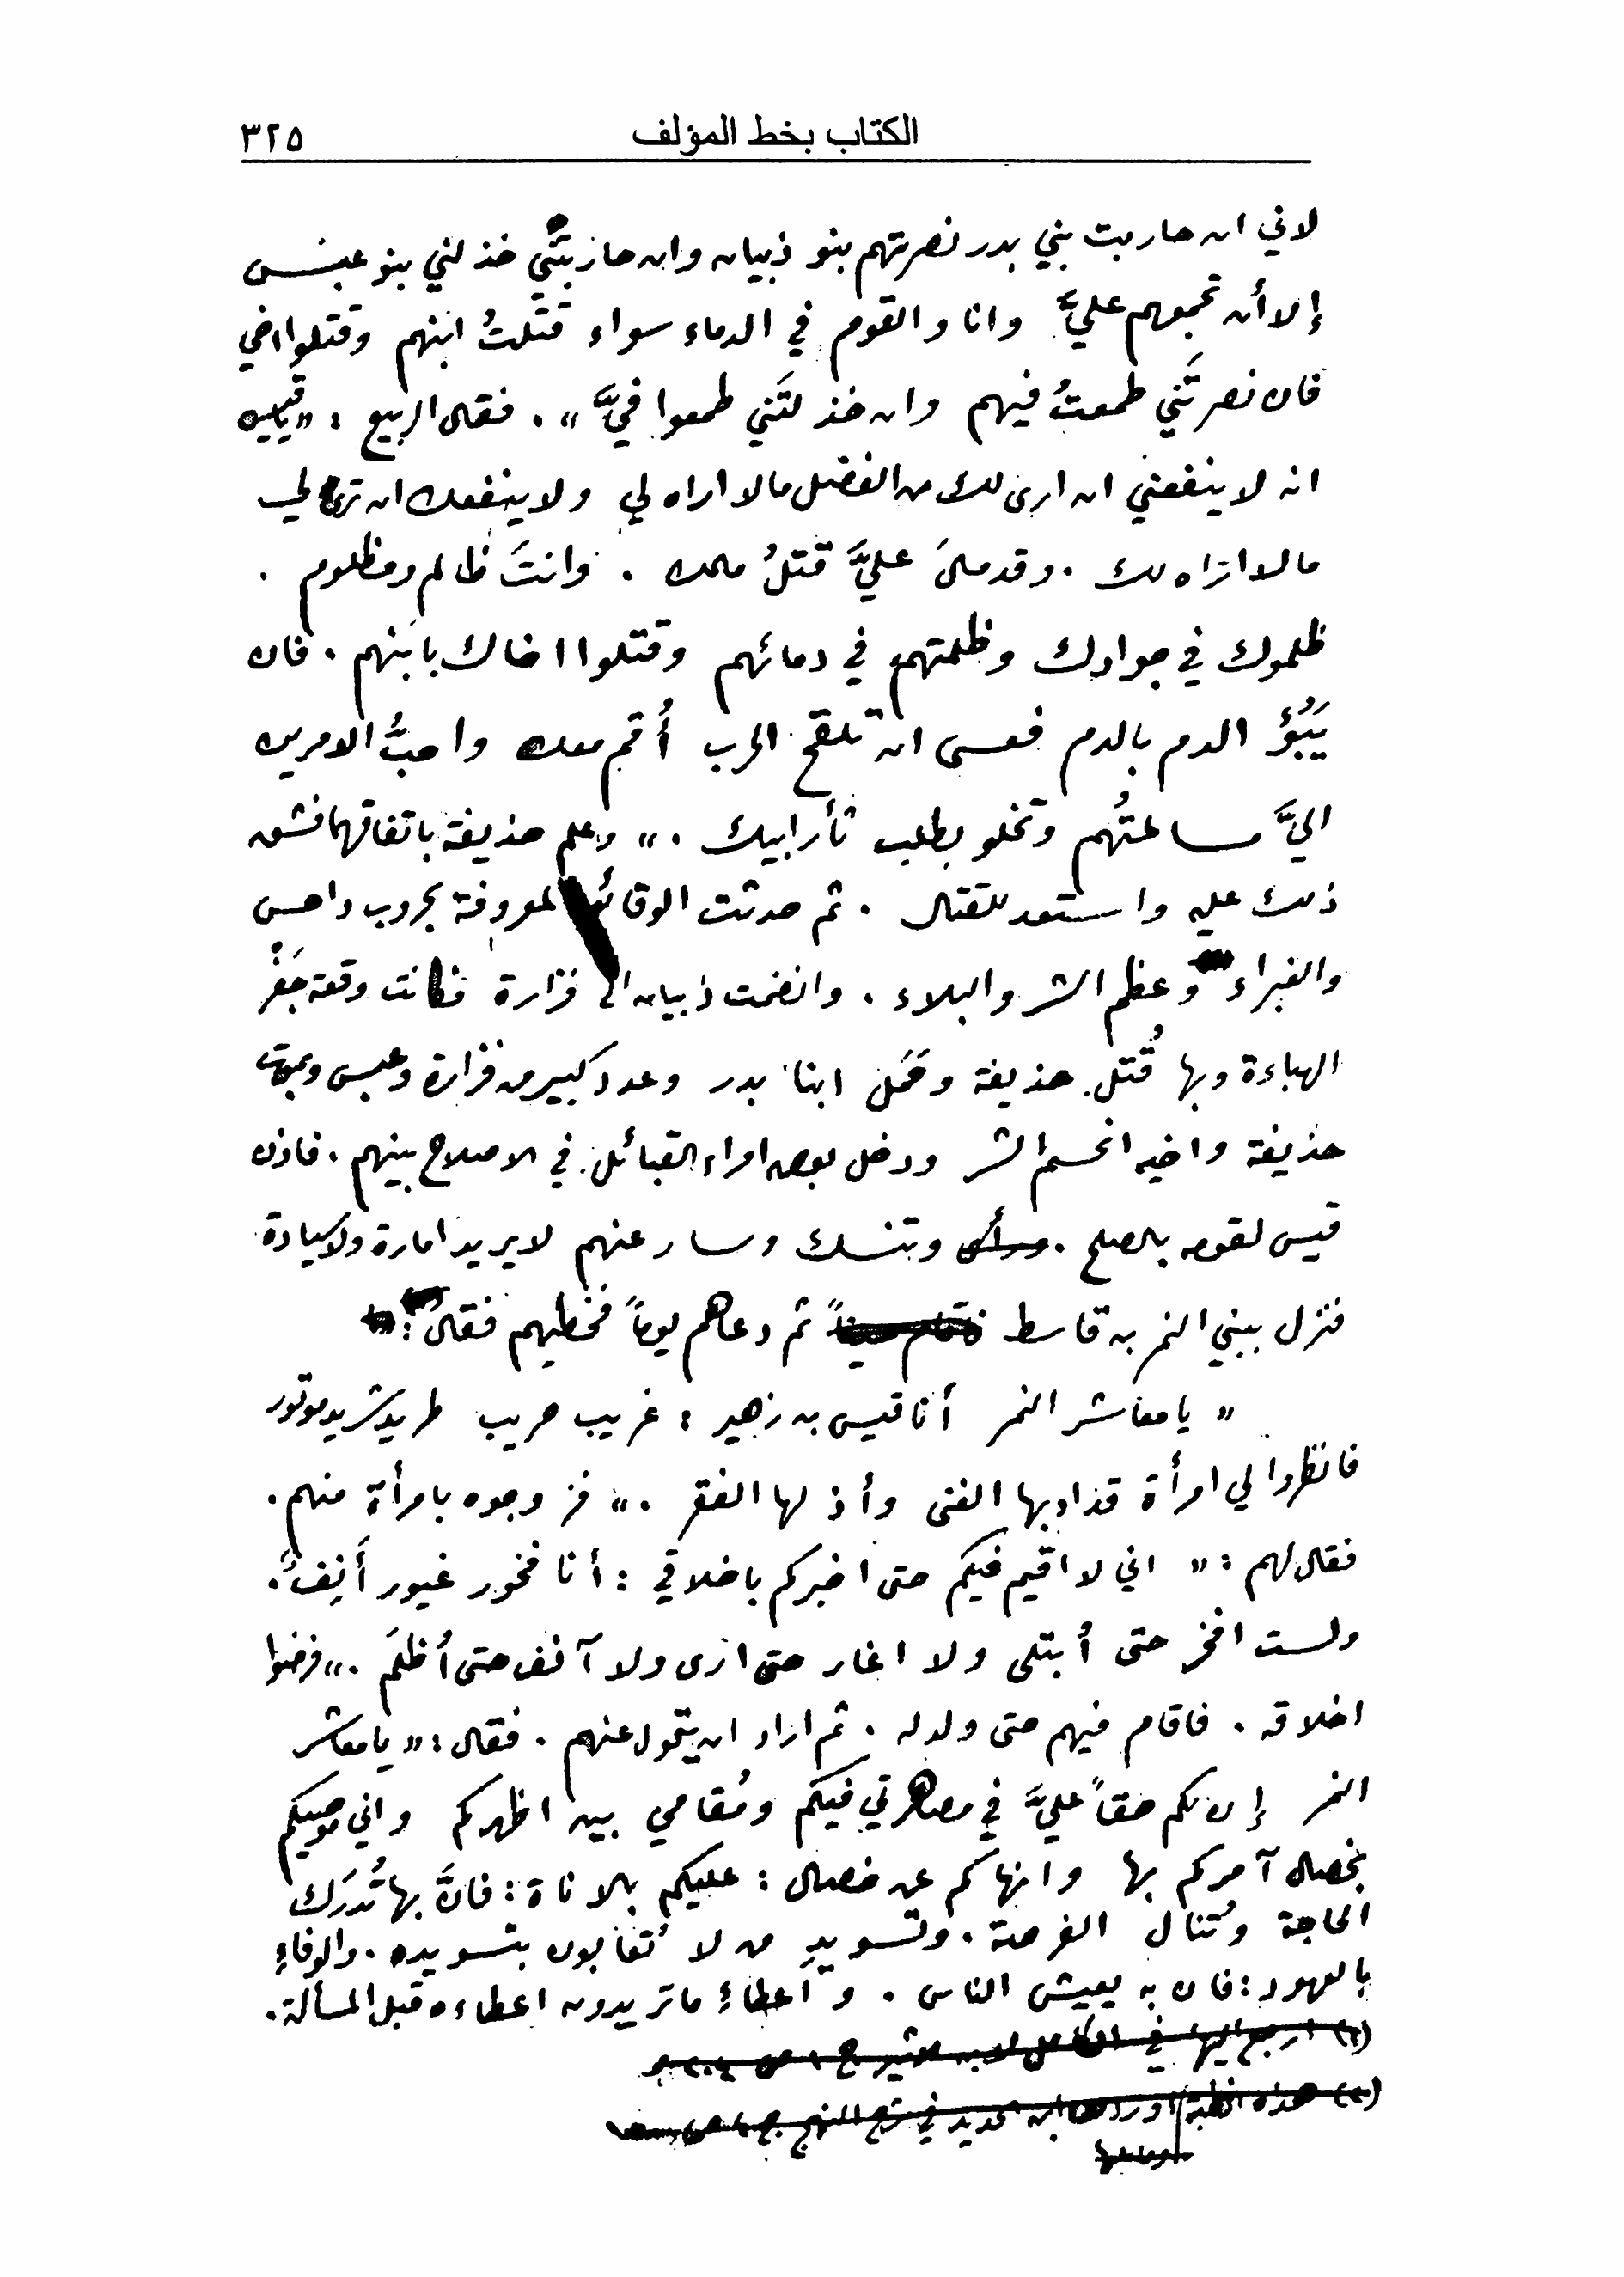 الكتاب بخط المؤلف ٣٢٥
لاني ان حاربت بني بدر نصرتهم بنو ذبيان وان حاربتَني خذلني بنو عبس
إلا أن تجمعهم عليَّ وانا والقوم في الدماء سواء قتلتُ ابنهم وقتلوا اخي
فان نصرتَني طمعتُ فيهم وان خذلتَني طمعوا فيَّ». فقال الربيع: «يا قيس
انه لا ينفعني ان ارى لك من الفضل ما لا اراه لي ولا ينفعك ان ترى لي
ما لا اراه لك. وقد عليَّ قتلُ مالك. وانتَ ظالم ومظلوم.
ظلموك في جوادك وظلمتهم في دمائهم وقتلوا اخاك بابنهم. فان
يَبُؤ الدم بالدم فعسى ان تلقح الحرب أُقم معك واحبُّ الامرين
اليَّ مسالمتُهم وتخلو بطلب ثأر ابيك.» وعلم حذيفة باتفاقهما فشق
ذلك عليه واستعد للقتال. ثم حدثت الوقائع المعروفة بحروب داحس
والغبراء وعظم الشر والبلاء. وانضمت ذبيان الى فزارة فكانت وقعة جَفْر
الهباءة وبها قُتل حذيفة وحَمَل ابنا بدر وعدد كبير من فزارة وعبس وبموت
حذيفة واخيه انحسم الشر ودخل بعض امراء القبائل في الاصلاح بينهم. فاذن
قيس لقومه بالصلح. وتنسك وسار عنهم لا يريد امارة ولا سيادة
فنزل ببني النمر بن قاسط فاقام حيناً ثم دعاهم يوماً فخطبهم فقال:
« يا معاشر النمر أنا قيس بن زهير: غريب حريب طريد شريد موتور
فانظروا لي امرأة قد ادبها الغنى وأذلها الفقر.» فزوجوه بامرأة منهم.
فقال لهم: « اني لا اقيم فيكم حتى اخبركم باخلاقي: أنا فخور غيور أَنِفٌ.
ولست افخر حتى أُبتلى ولا اغار حتى ارى ولا آنف حتى أُظلَم.» فرضوا
اخلاقه. فاقام فيهم حتى ولد له. ثم اراد ان يتحول عنهم. فقال: « يا معاشر
النمر إن لكم حقاً عليَّ في مصاهرتي فيكم ومُقامي بين اظهركم واني موصيكم
بخصال آمركم بها وانهاكم عن خصال: عليكم بالاناة: فانَّ بها تُدرَك
الحاجة وتُنال الفرصة. وتسويدِ من لا تُعابون بتسويده. والوفاءِ
بالعهود: فان به يعيش الناس. واعطاءِ ما تريدون اعطاءه قبل المسألة.
(١) ارجع اليها في الكامل لابن الاثير ج ١ ص ٢٠٤
(٢) هذه الخطبة اوردها ابن الحديد في شرح النهج ج ٤